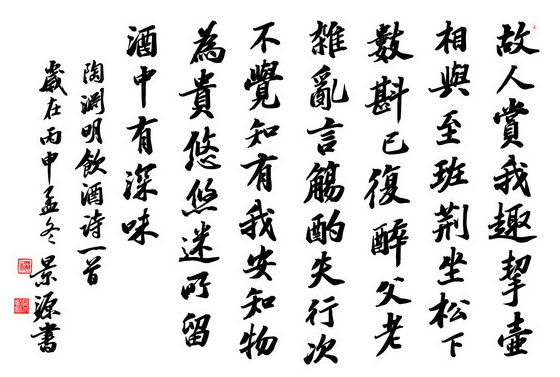 故人賞我趣挈壺
相與至班荊坐松下
數斟已復醉父老
雜亂言觴酌失行次
不覺知有我安知物
為貴悠悠迷所留
酒中有深味
陶淵明飲酒诗一首
歲在丙申孟冬景源書